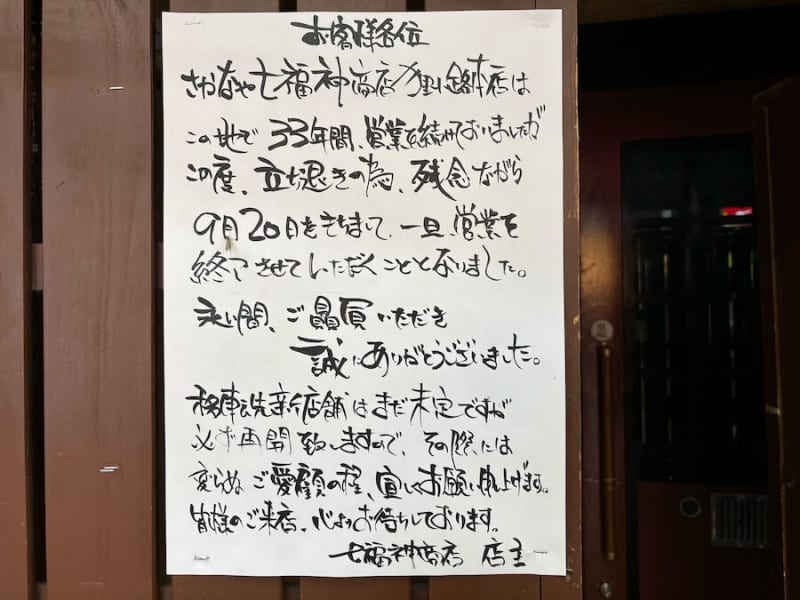 お客様各位
さかなや七福神商店狸小路本店は
この地で33年間、営業を続けておりましたが
この度、立ち退きの為、残念ながら
9月20日をもちまして、一旦、営業を
終了させていただくこととなりました。
永い間、ご贔屓いただき
誠にありがとうございました。
移転先新店舗はまだ未定ですが
必ず再開致しますので、その際には
変らぬご愛顧の程、宜しくお願い申し上げます。
皆様のご来店、心よりお待ちしております。
七福神商店 店主